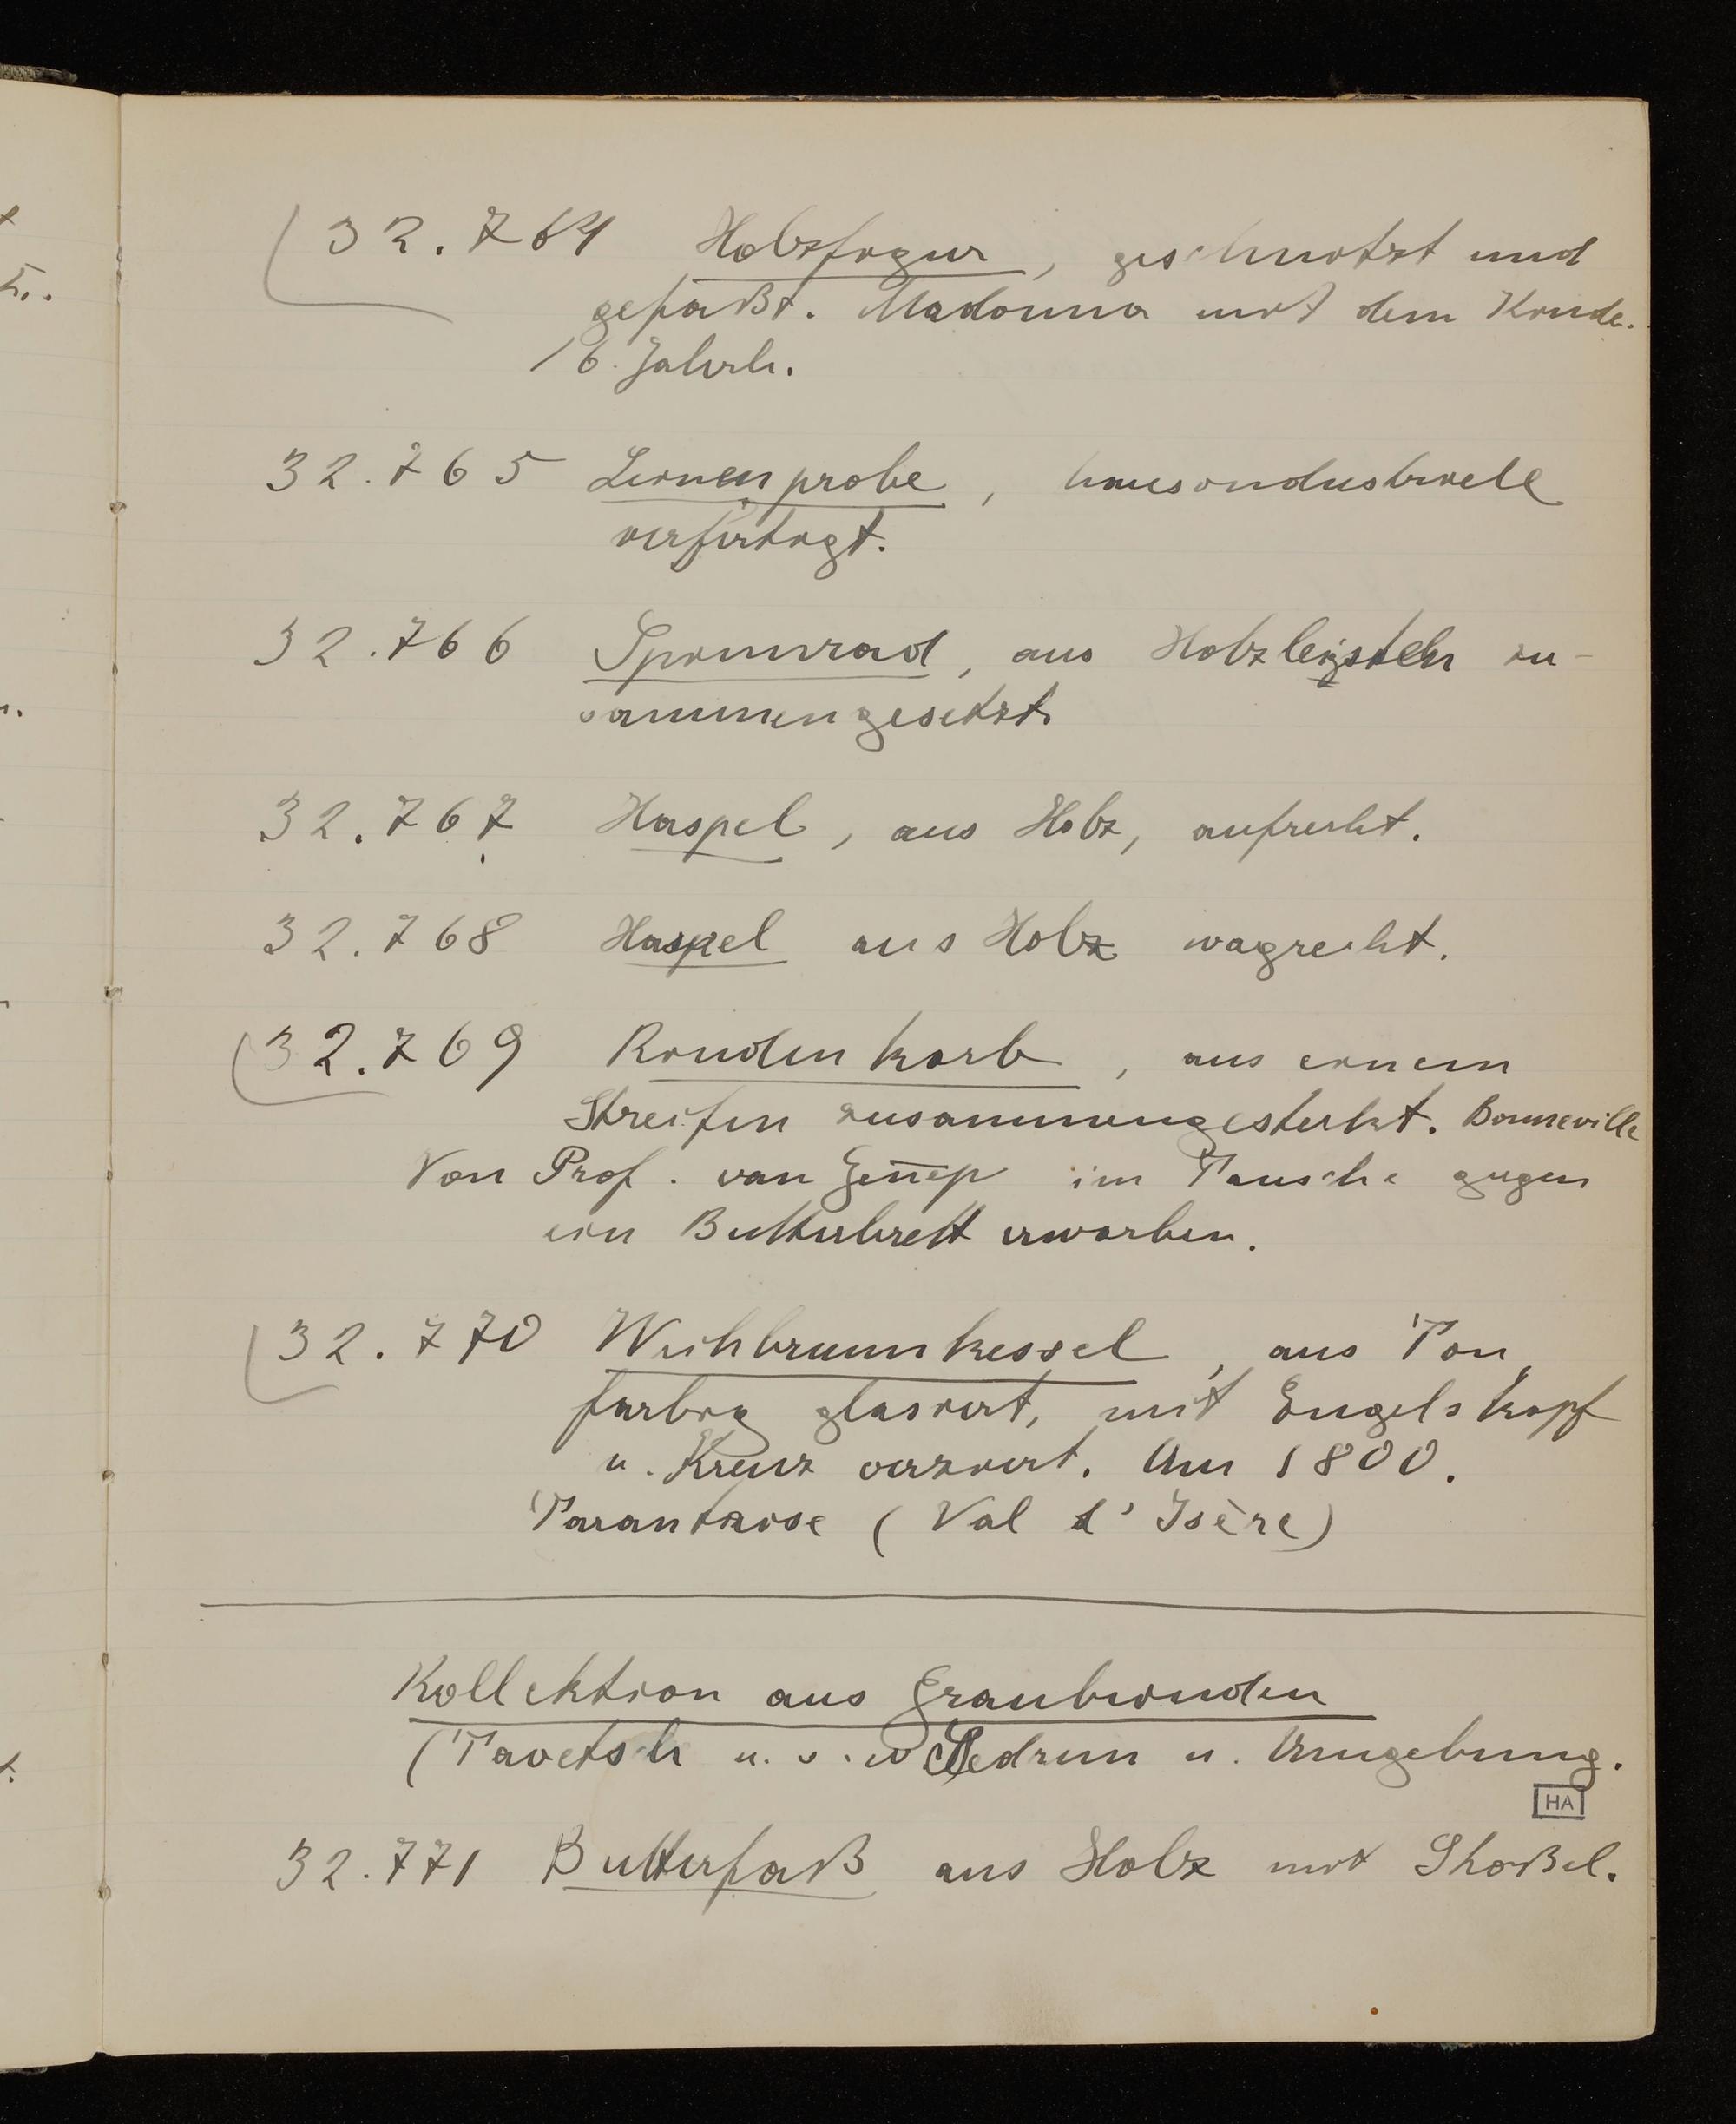 32.764 Holzfigur, geschnitzt und
gefaßt. Madonna mit dem Kinde.
16. Jahrh.
32.765 Leinenprobe, hausindustriell
verfertigt.
32.766 Spinnrad, aus Holzleisten zu-
sammengesetzt.
32.767 Haspel, aus Holz, aufrecht.
32.768 Haspel aus Holz wagrecht.
32.769 Rindenkorb, aus einem
Streifen zusammengesteckt. Bonneville
Von Prof. van Geñep im Tausche gegen
ein Butterbrett erworben.
32.770 Weihbrunnkessel, aus Ton,
farbig glasiert, mit Engelskopf
u. Kreuz verziert. Um 1800.
Tarantaise (Val d'Isère)
Kollektion aus Graubünden
(Tavetsch u. s. w Sedrun u. Umgebung.
HA
32.771 Butterfaß aus Holz mit Stoßel.